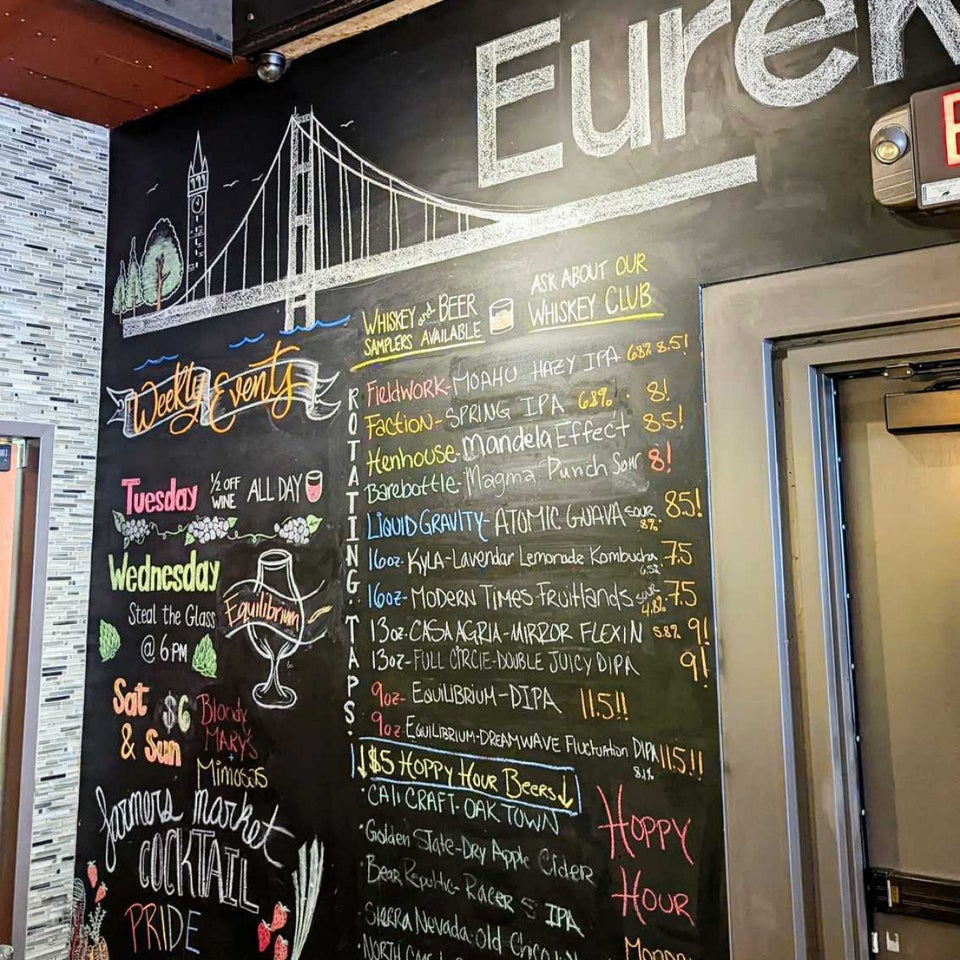 Eurek
WHISKEY and BEER
SAMPLERS AVAILABLE
ASK ABOUT OUR
WHISKEY CLUB
Weekly Events
Tuesday ½ OFF WINE ALL DAY
Wednesday
STEAL THE GLASS
@ 6 PM
Equilibrium
Sat & Sun $6 Bloody MARY'S + Mimosas
farmers market
COCKTAIL
PRIDE
ROTATING TAPS:
FieldWORK-MOAHU HAZY IPA 6.8% 8.5!
FACTION-SPRING IPA 6.8% 8!
Henhouse-Mandela Effect 8.5!
Barebottle-Magma Punch Sour 8!
LIQUID GRAVITY-ATOMIC GUAVA SOUR 8% 8.5!
16oz-KYLA-Lavendar Lemonade Kombucha 6.5% 7.5
16oz-MODERN TIMES FRUITLANDS SOUR 4.8% 7.5
13oz-CASA AGRIA-MIRROR FLEXIN 5.8% 9!
13oz-FULL CIRCLE-DOUBLE JUICY DIPA 9!
9oz-EQUILIBRIUM-DIPA 11.5!!
9oz-EQUILIBRIUM-DREAMWAVE Fluctuation DIPA 8.1% 11.5!!
↓$5 HOPPY HOUR BEERS↓
•CALI CRAFT-OAK TOWN
•Golden State-Dry Apple Cider
Bear Republic-Racer 5 IPA
SIERRA NEVADA-Old
NORTH
HOPPY
HOUR
E